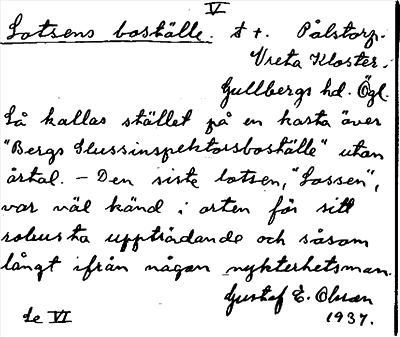 V
Lotsens boställe. t +. Pålstorp.
Vreta Kloster.
Gullbergs hd. Ögl.
Så kallas stället på en karta över
"Bergs Slussinspektorsboställe" utan
årtal. – Den siste lotsen, "Lossen",
var väl känd i orten för sitt
robusta uppträdande och såsom
långt ifrån någon nykterhetsman.
Gustaf E. Olsson
se VI 1937.